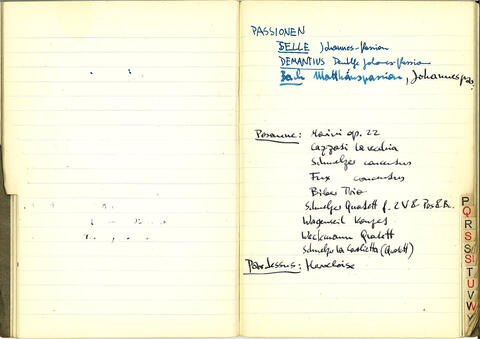 PASSIONEN
SELLE Johannes-Passion
DEMANTIUS Deutsche Johannes-Passion
Bach Matthäuspassion, Johannespass.
Posaune: Marini op. 22
Cazzati La vecchia
Schmelzer concentus
Fux concentus
Biber Trio
Schmelzer Quartett f. 2 V & Pos & Bc.
Wagenseil Konzert
Weckmann Quartett
Schmelzer La Carolietta (Quartett)
Pardessus:
P
Q
R
S
S
T
U
V
W